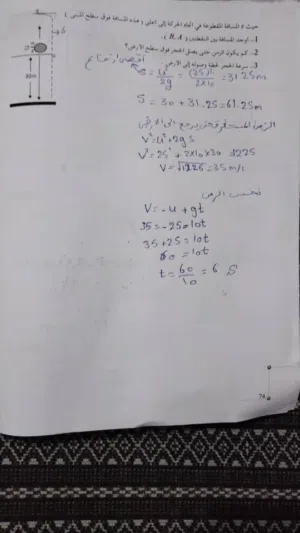 حيث s المسافة المقطوعة في اتجاه الحركة إلى أعلى ( هذه المسافة فوق سطح المبنى )
1- أوجد المسافة بين النقطتين ( B, A ).
2- كم يكون الزمن حتى يصل الحجر فوق سطح الأرض؟
3- سرعة الحجر لحظة وصوله إلى الأرض.
أقصى ارتفاع
S = u²/2g = (25)²/2×10 = 31.25m
S = 30 + 31.25 = 61.25m
الزمن
V² = u² + 2gS
V² = 25² + 2×10×30 = 1225
V = √1225 = 35 m/s
نحسب الزمن
V = -u + gt
35 = -25 = 10t
35 + 25 = 10t
60 = 10t
t = 60/10 = 6 S
30m
S
74